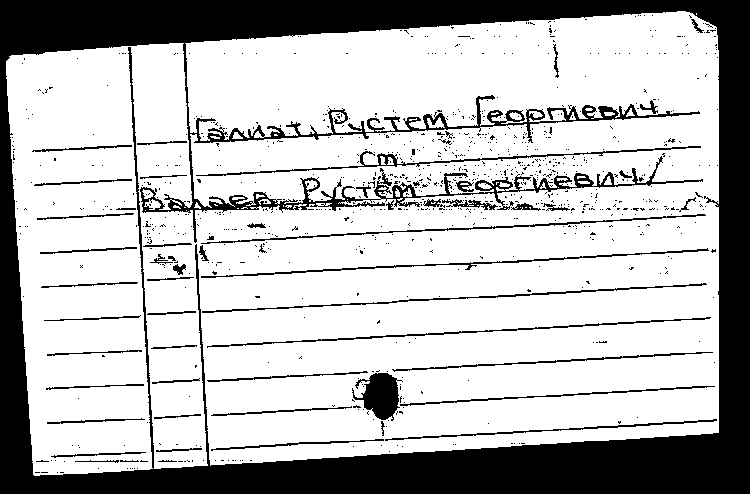 Галиат, Рустем Георгиевич.
см.
Валаев, Рустем Георгиевич/